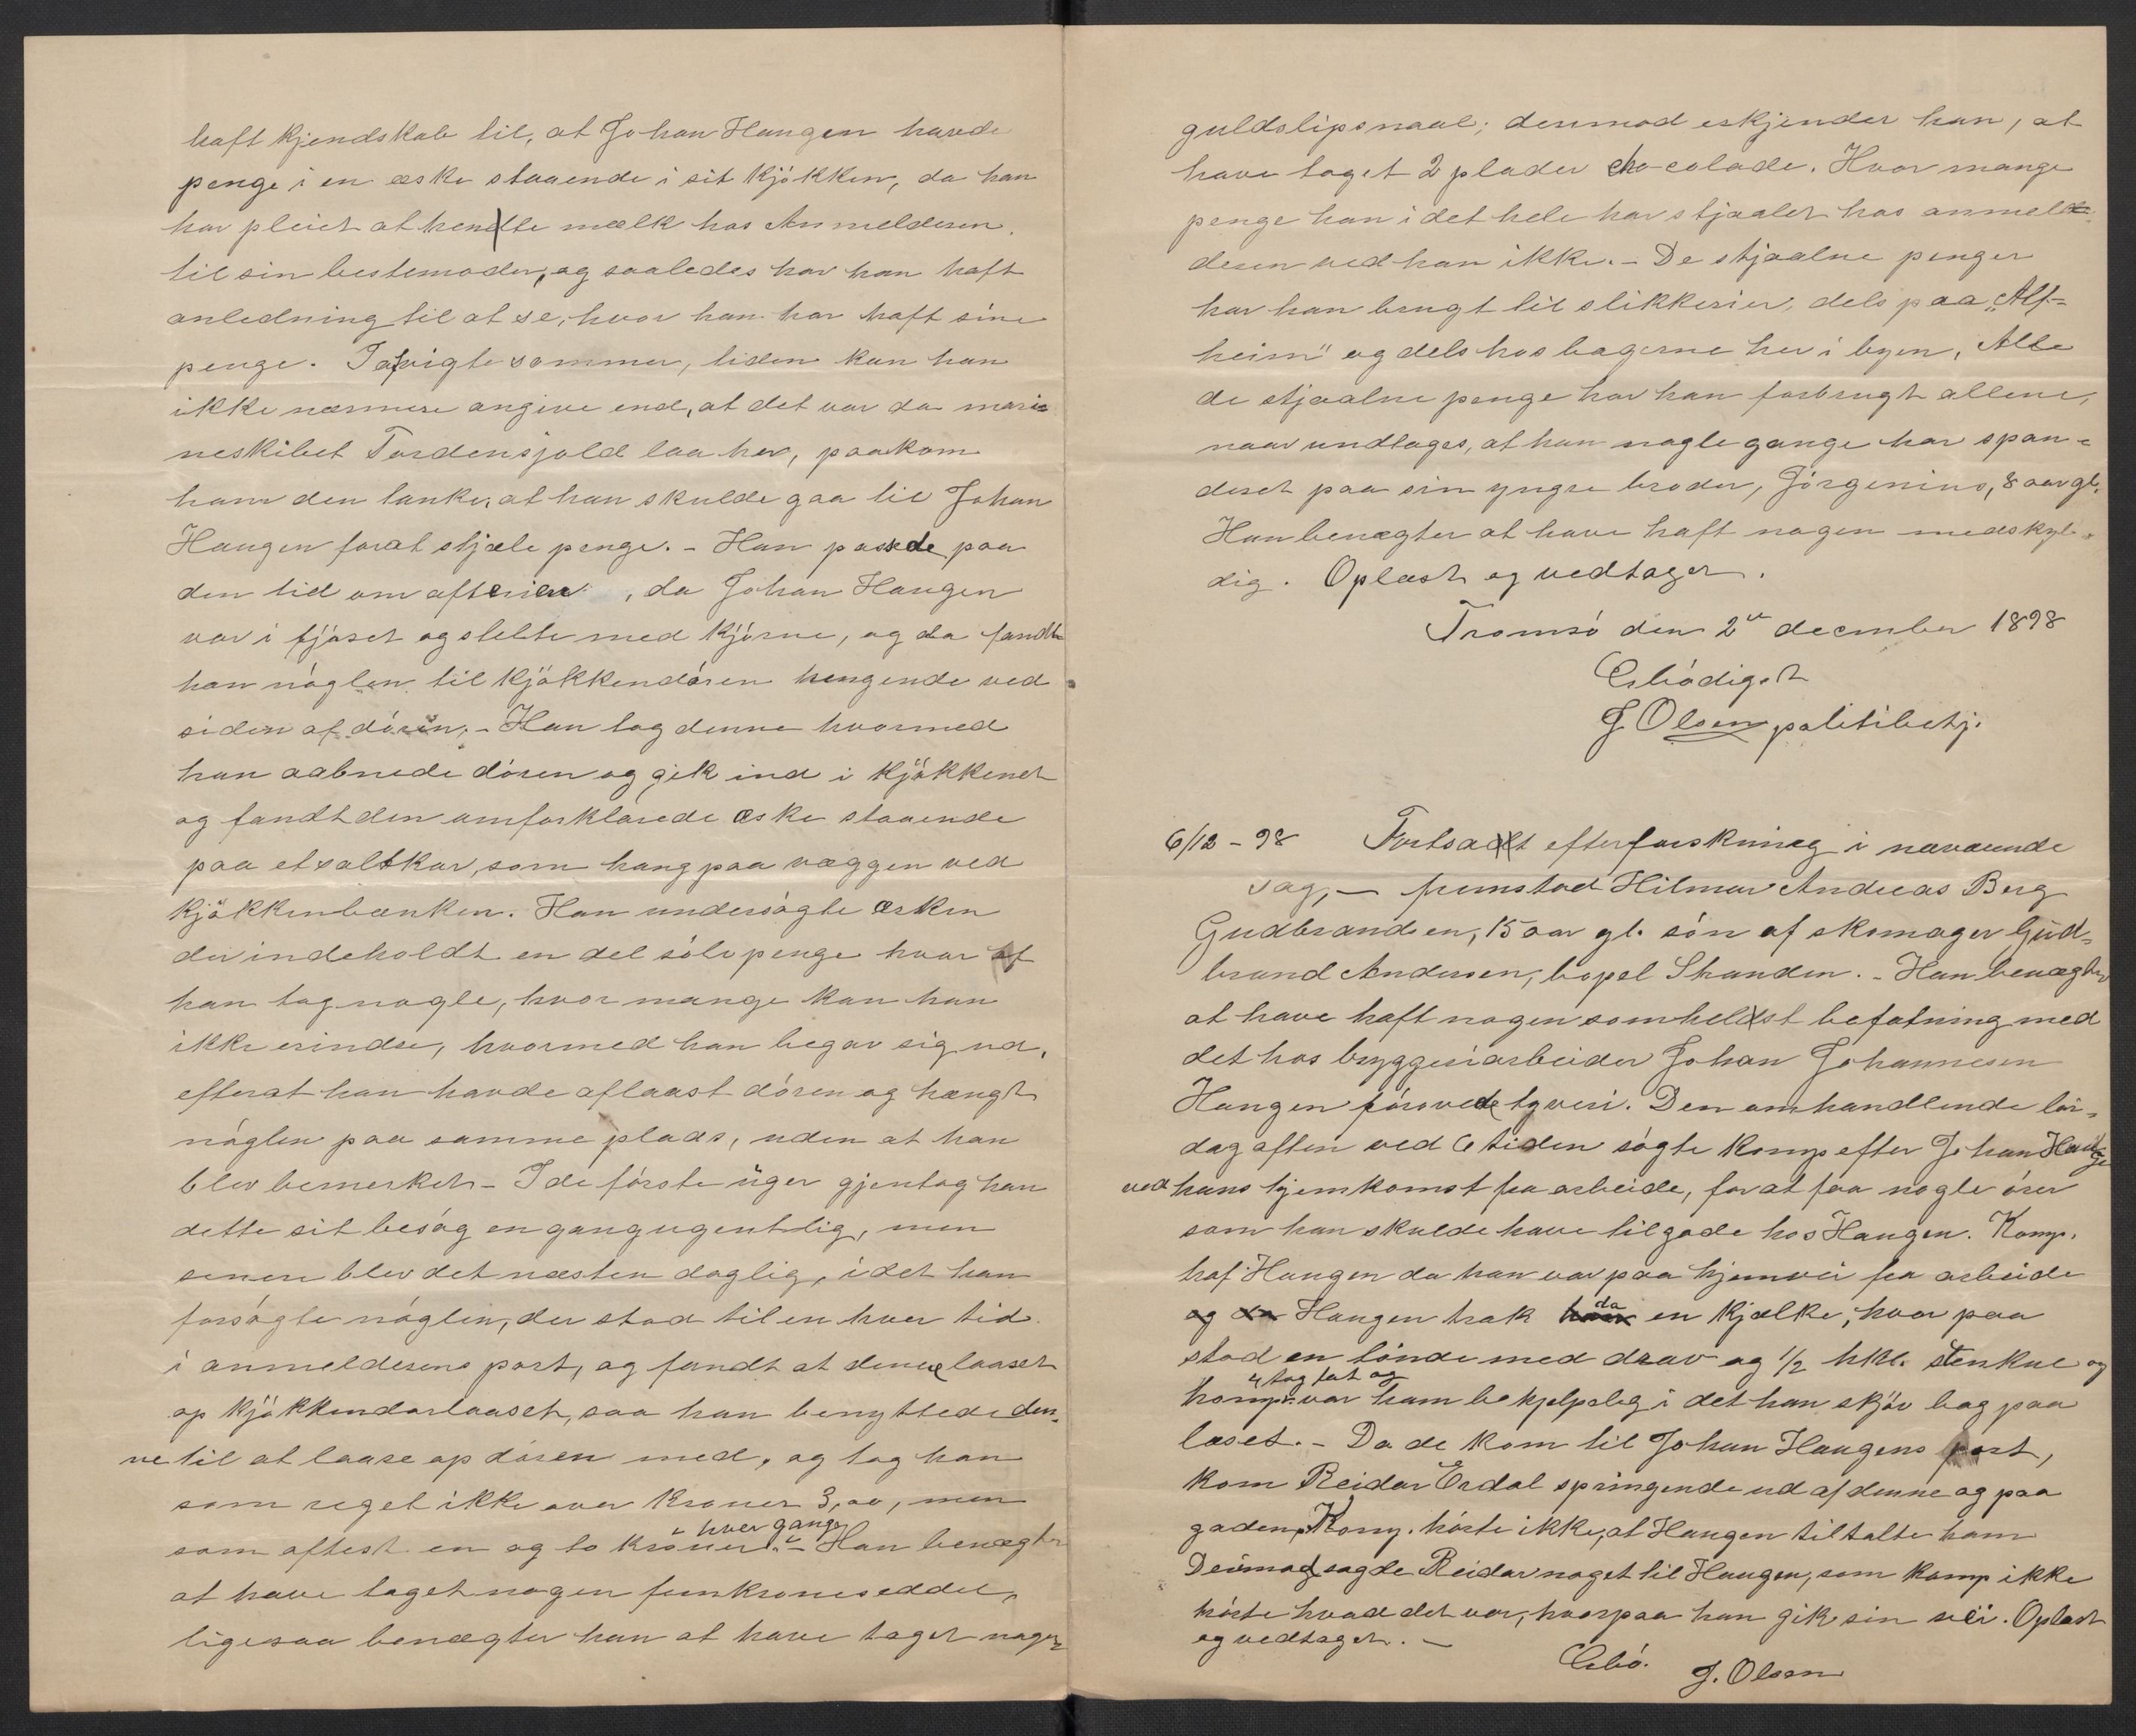 haft kjendskab til, at Johan Haugen havde
penge i en æske staaende i sit kjökken, da han
har pleiet at hente mælk hos Anmelderen
til sin bestemoder, og saaledes har han haft
anledning til at se, hvor han har haft sine
penge. Iafvigte sommer, tiden kan han
ikke nærmere angive end, at det var da mari-
neskibet Tordensjold laa her, paakom
ham den tanke, at han skulde gaa til Johan
Haugen forat stjæle penge. - Han passede paa
den tid om aftenen, da Johan Haugen
var i fjöset og stelte med kjörne, og da fandt
han nöglen til kjökkendören hengende ved
siden af dören. - Han tog denne hvormed
han aabnede dören og gik ind i kjökkenet
og fandt den omforklarede æske staaende
paa et saltkar, som hang paa væggen ved
kjökkenbænken. Han undersögte æsken
der indeholdt en del sölvpenge hvor af
han tog nogle, hvor mange kan han
ikke erindre, hvormed han begav sig ud,
efterat han havde aflaast dören og hængt
nöglen paa samme plads, uden at han
blev bemerket - I de förste uger gjentog han
dette sit besög en gang ugentlig, men
senere blev det næsten daglig, i det han
forsögte nöglen, der stod til en hver tid
i anmelderens port, og fandt at denne laaset
op kjökkendørlaaset, saa han benyttede den-
ne til at laase op dören med, og tog han
som reget ikke over Kroner 3,00, men
som oftest en og to kroner hver gang. - Han benægter
at have taget nogen femkroneseddel,
ligesaa benægter han at have taget nogen
guldslipsnaal; derimod erkjender han, at
have taget 2 plader chocolade. Hvor mange
penge han i det hele har stjaalet hos anmel-
deren ved han ikke. - De stjaalne penger
har han brugt til slikkerier, dels paa "Alf-
heim" og dels hos bagerne her i byen. Alle
de stjaalne penge har han forbrugt allene,
naar undtages, at han nogle gange har span-
deret paa sin yngre broder, Jörgenius, 8 aar gl.
Han benægter at have haft nogen medskyl-
dig. Oplæst og vedtaget.
Tromsö den 2de december 1898
Erbödigst
J Olsen politibetj.
6/12 - 98 Fortsat efterforskning i nærværende
sag, - fremstod Hilmar Andreas Berg
Gudbrandsen, 15 aar gl. sön af skomager Gud-
brand Andersen, bopel Skanden. - Han benægter
at have haft nogen somhelst befatning med
det hos bryggeriarbeider Johan Johannesen
Haugen forövede tyveri. Den omhandlende lör-
dag aften ved 6 tiden sögte komp efter Johan Hauge
ved hans hjemkomst fra arbeide, for at faa nogle örer
som han skulde have tilgode hos Haugen. Komp.
traf Haugen da han var paa hjemvei fra arbeide
og da Haugen trak da en kjælke, hvor paa
stod en tönde med drav og 1/2 hkl. stenkul og
komp. tog fat og var ham behjelpelig i det han skjöv bag paa
læset. - Da de kom til Johan Haugens port,
kom Reidar Erdal springende ud af denne og paa
gaden, Komp. hörte ikke, at Haugen tiltalte ham
Derimod sagde Reidar noget til Haugen, som komp ikke
hörte hvad det var, hvorpaa han gik sin vei. Oplæst
og vedtaget. -
Erbö. J. Olsen